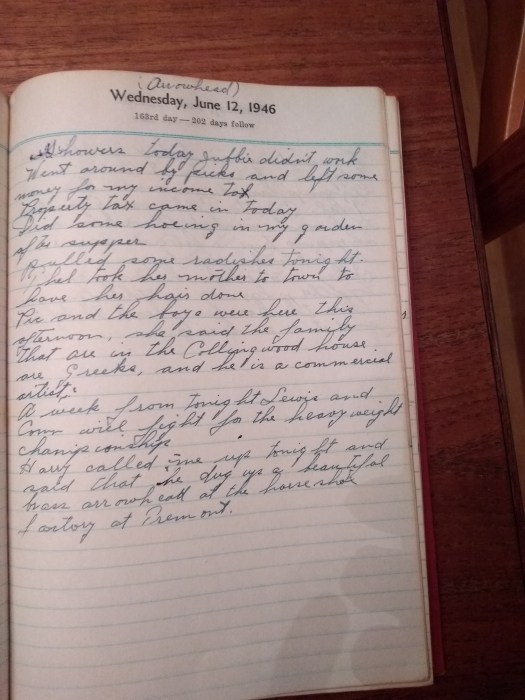 (Arrowhead)
Wednesday, June 12, 1946
163rd day — 202 days follow
Showers today didn't work
Went around by and left some
money for my income tax
Property tax came in today
Did some hoeing in my garden
after supper
Pulled some radishes tonight.
took her mother to town to
have her hair done
Pic and the boys were here this
afternoon, she said the family
that are in the Collingwood house
are Greeks, and he is a commercial
artist.
A week from tonight Lewis and
Conn will fight for the heavyweight
championship
Harry called me up tonight and
said that he dug up a beautiful
brass arrowhead at the horse shoe
factory at Tremont.